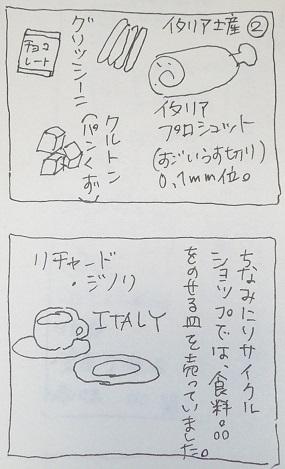 イタリア土産②
イタリア
プロシュット
(すごいうす切り)
0.1mm位。
グリッシーニ
クルトン
(パンくず)
チョコ
レート
ちなみにリサイクル
ショップでは、食料。。。
をのせる皿を売っていました。
リチャード
・ジノリ
ITALY